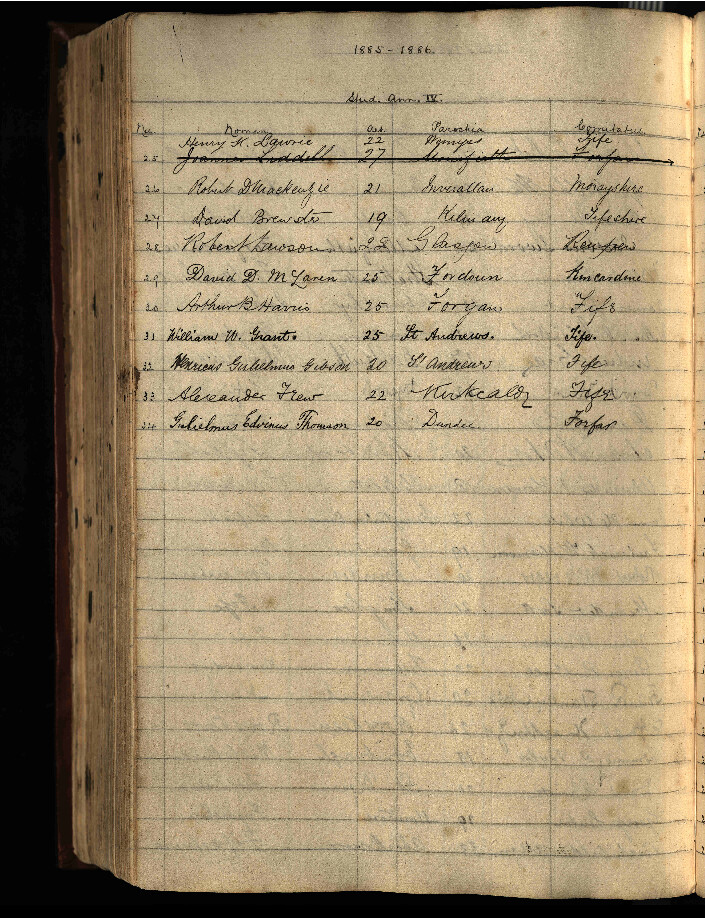 1885 - 1886
Stud. Ann. IV.
No. Nomen Aet. Parochia Comitatus
Henry H. Lawrie 22 Wemyss Fife
25 Joannes Liddell 27 Monifieth Forfar
26 Robert D Mackenzie 21 Inverallan Morayshire
27 David Brewster 19 Kilmany Fifeshire
28 Robert Lawson 22 Glasgow Renfrew
29 David D. McLaren 25 Fordoun Kincardine
30 Arthur B Harris 25 Forgan Fife
31 William W. Grant. 25 St Andrews. Fife.
32 Henricus Gulielmus Gibson 20 St Andrews Fife
33 Alexander Frew 22 Kirkcaldy Fife
34 Gulielmus Edvinus Thomson 20 Dundee. Forfar